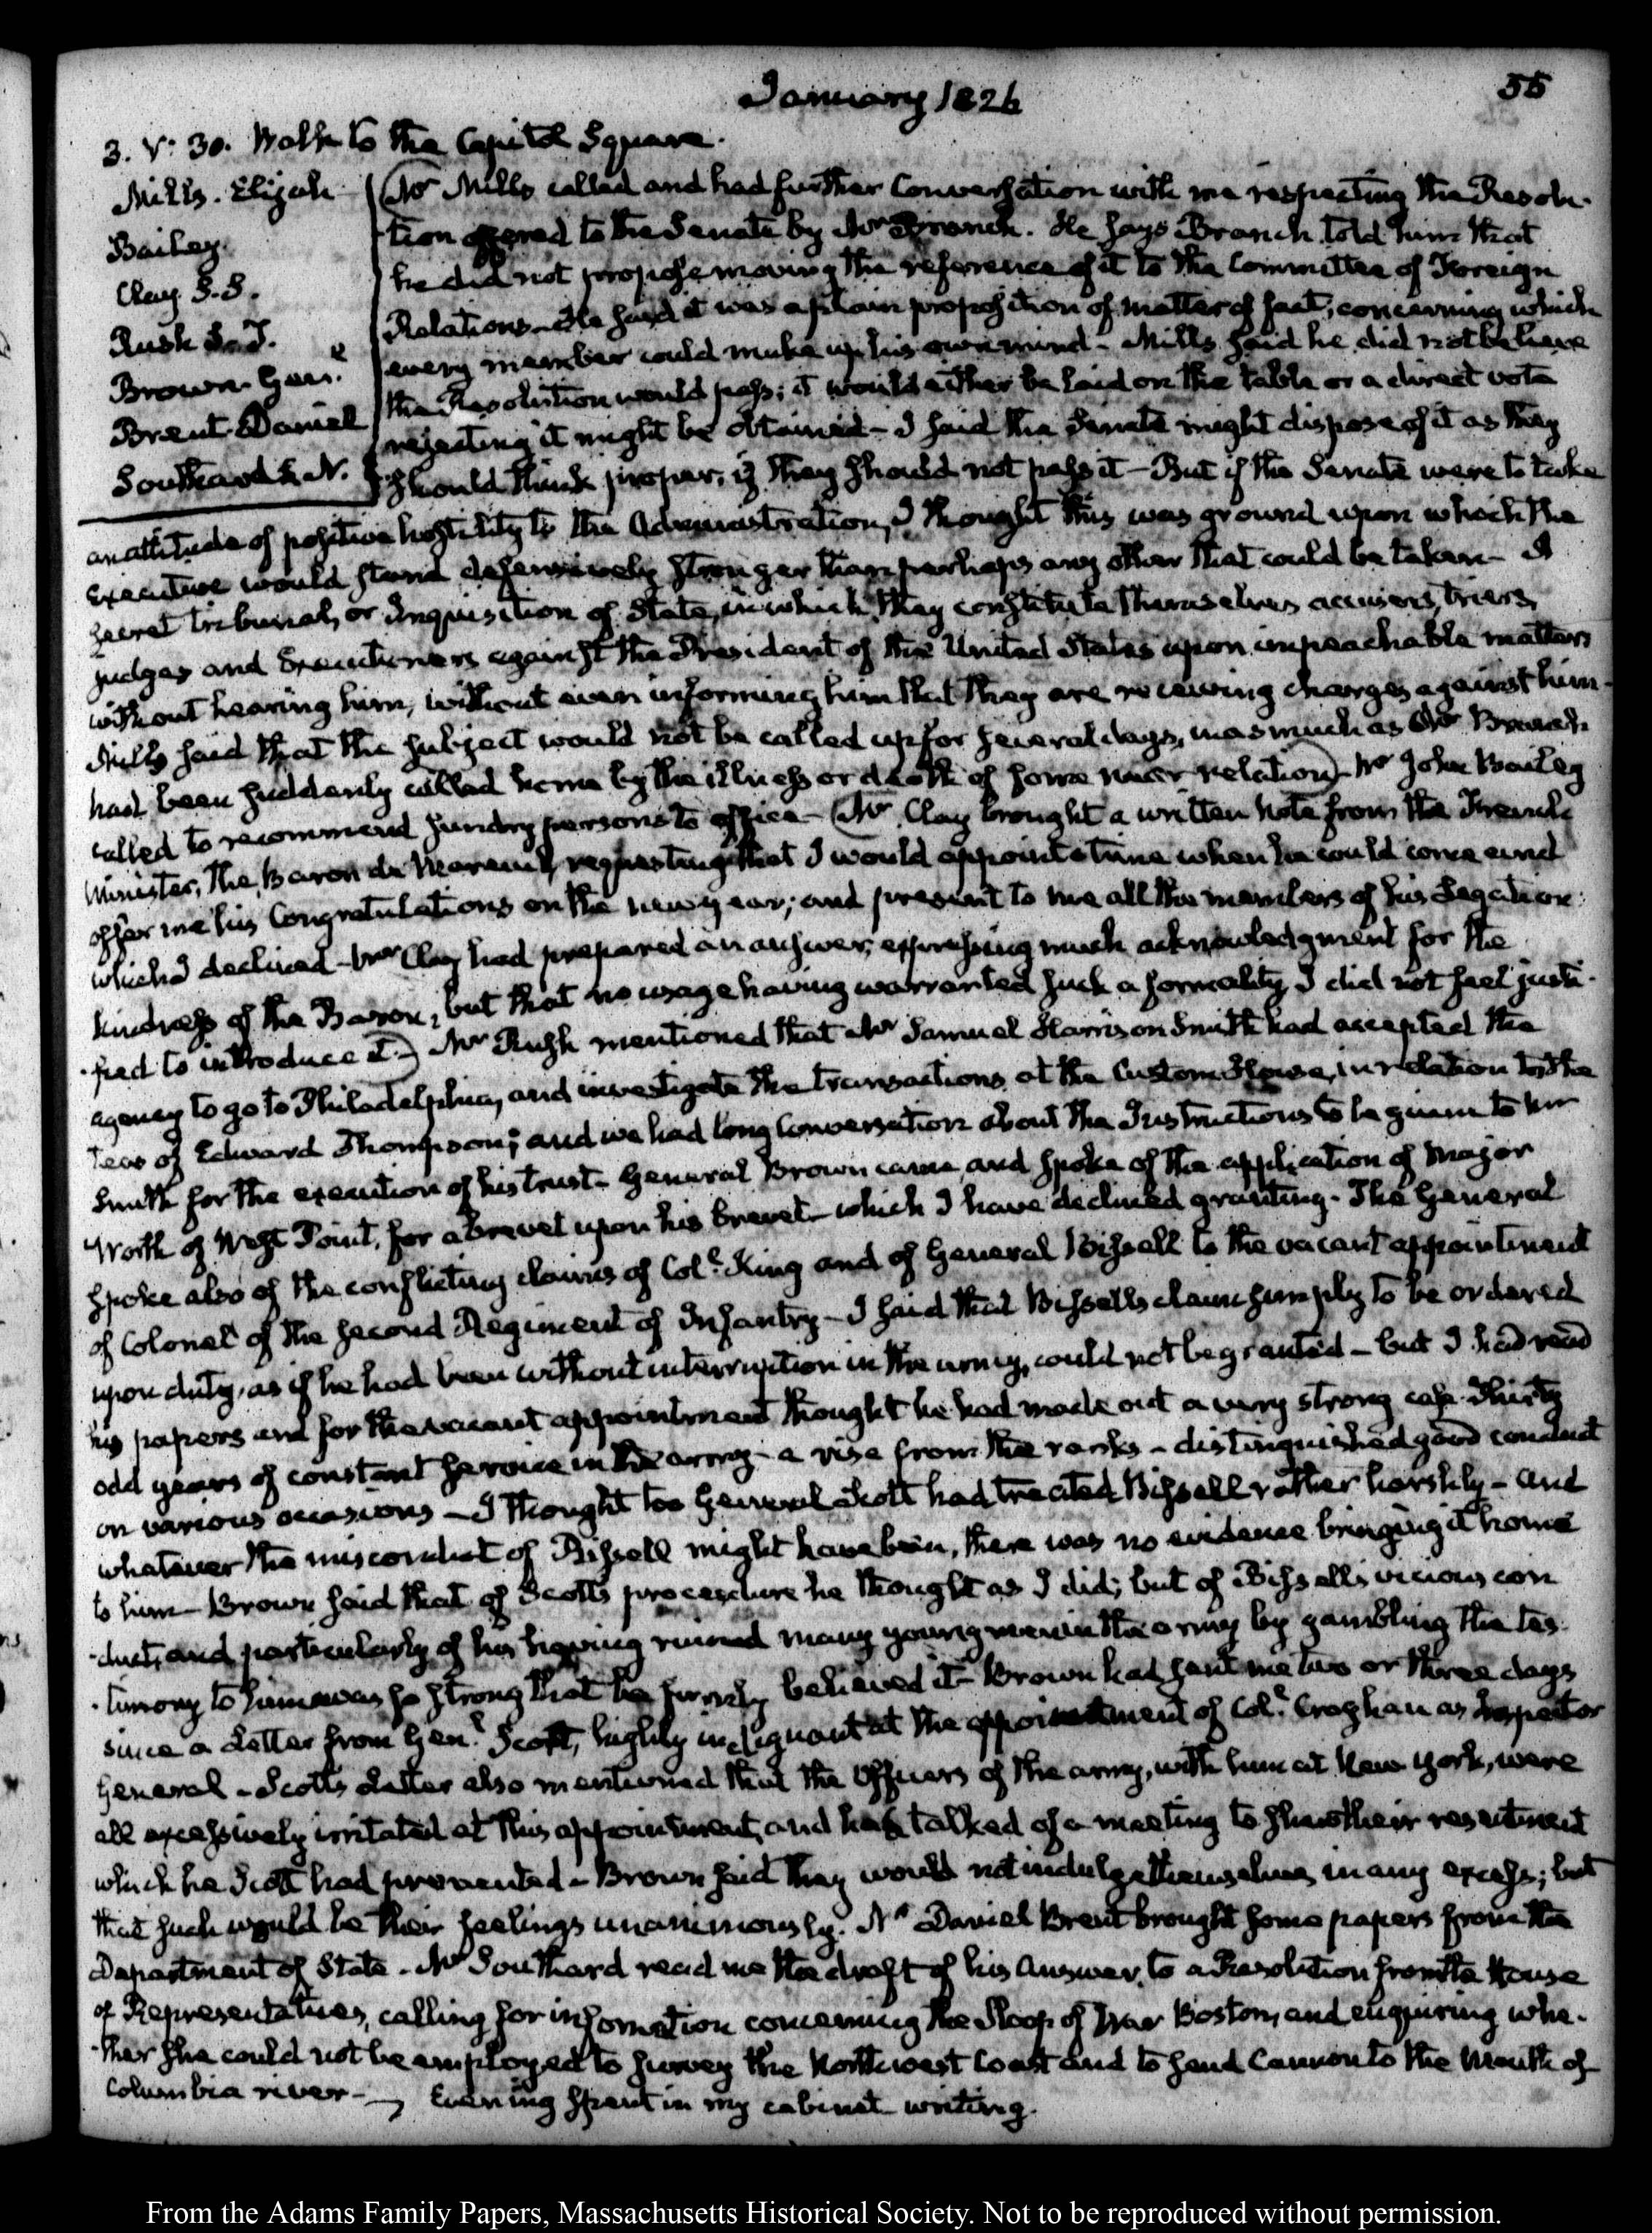 January 1826
55
3. V: 30. Walk to the Capitol Square.
Mills. Elijah
Bailey.
Clay S.S.
Rush S.T.
Brown. Genl.
Brent Daniel
Southard S. N.
Mr Mills called and had further Conversation with me respecting the Resolu-
tion offered to the Senate by Mr Branch. He says Branch told him that
he did not propose moving the reference of it to the Committee of Foreign
Relations. He said it was a plain proposition of matter of fact, concerning which
every member could make up his own mind - Mills said he did not believe
the Resolution would pass; it would either be laid on the table or a direct vote
rejecting it might be obtained - I said the Senate might dispose of it as they
should think proper, if they should not pass it - But if the Senate were to take
an attitude of positive hostility to the Administration, I thought this was ground upon which the
Executive would stand defensively stronger than perhaps any other that could be taken - A
secret tribunal, or Inquisition of State, in which they constitute themselves accusers, triers,
judges and Executioners against the President of the United States upon impeachable matters
without hearing him, without even informing him that they are receiving charges against him -
Mills said that the subject would not be called up for several days, inasmuch as Mr Branch
had been suddenly called home by the illness or death of some near relation) - Mr John Bailey
called to recommend sundry persons to office - (Mr Clay brought a written Note from the French
Minister, The Baron de Mareuil, requesting that I would appoint a time when he could come and
offer me his Congratulations on the new year; and present to me all the members of his Legation:
which I declined - Mr Clay had prepared an answer, expressing much acknowledgment for the
kindness of the Baron, but that no usage having warranted such a formality, I did not feel justi-
-fied to introduce it.) Mr Rush mentioned that Mr Samuel Harrison Smith had accepted the
agency to go to Philadelphia, and investigate the transactions at the Custom House, in relation to the
teas of Edward Thompson; and we had long Conversation about the Instructions to be given to Mr
Smith for the execution of his trust - General Brown came, and spoke of the application of Major
Worth of West Point, for a brevet upon his brevet - which I have declined granting. The General
spoke also of the conflicting claims of Col. King and of General Bissell to the vacant appointment
of Colonel of the second Regiment of Infantry - I said that Bissell's claim simply to be ordered
upon duty, as if he had been without interruption in the army, could not be granted - but I had read
his papers and for the vacant appointment thought he had made out a very strong case. Thirty
odd years of constant service in the army - a rise from the ranks - distinguished good conduct
on various occasions - I thought too General Scott had treated Bissell rather harshly - and
whatever the misconduct of Bissell might have been, there was no evidence bringing it home
to him - Brown said that of Scott's procedure he thought as I did; but of Bissell's vicious con
-duct, and particularly of his having ruined many young men in the army by gambling the tes-
-timony to him was so strong that he firmly believed it - Brown had sent me two or three days
since a Letter from Genl. Scott, highly indignant at the appointment of Col. Croghan as Inspector
General - Scott's Letter also mentioned that the Officers of the army, with him at New York, were
all excessively irritated at this appointment, and had talked of a meeting to shew their resentment
which he Scott had prevented - Brown said they would not indulge themselves in any excess; but
that such would be their feelings unanimously. Mr Daniel Brent brought some papers from the
Department of State - Mr Southard read me the draft of his Answer, to a Resolution from the House
of Representatives, calling for information concerning the Sloop of War Boston, and enquiring whe-
-ther she could not be employed to survey the Northwest Coast and to send Cannon to the Mouth of
Columbia river - Evening spent in my cabinet writing.
From the Adams Family Papers, Massachusetts Historical Society. Not to be reproduced without permission.